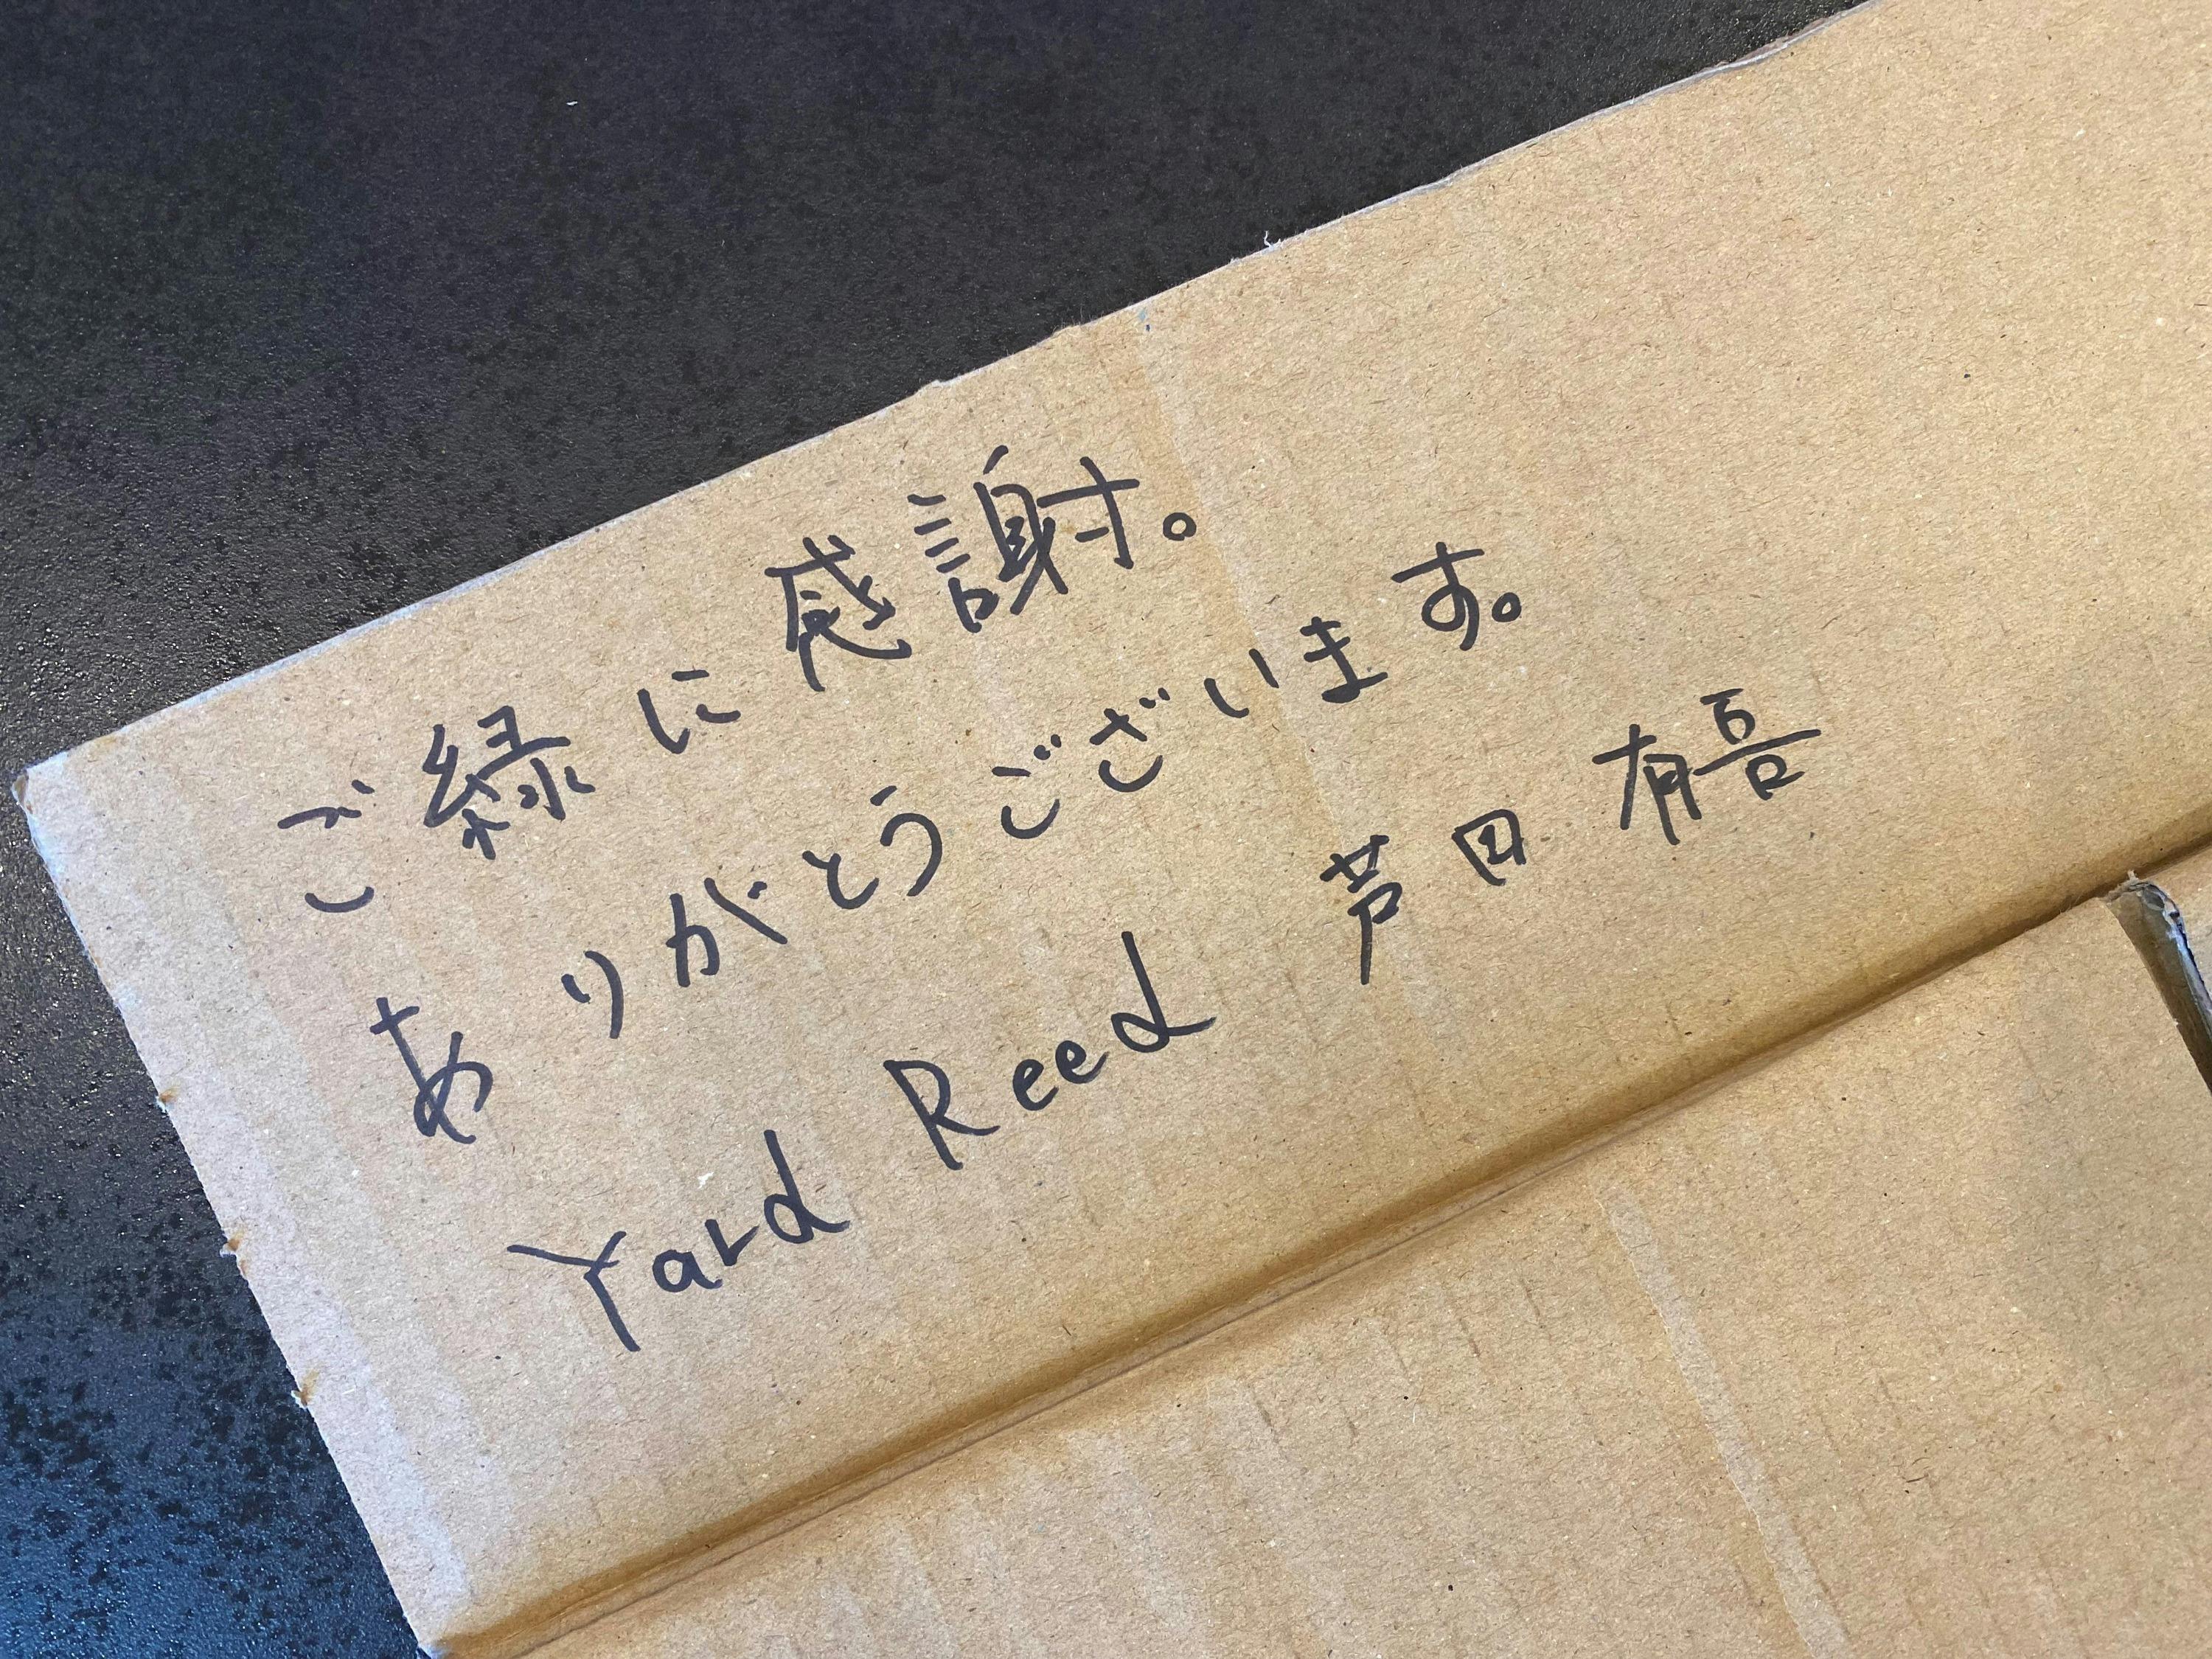 ご緑に感謝。
ありがとうございます。
Yard Reed 芦田 有吾